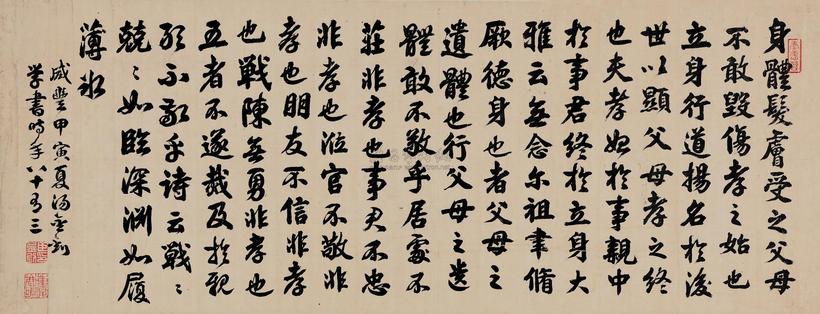 身體髮膚受之父母
不敢毀傷孝之始也
立身行道揚名於後
世以顯父母孝之終
也夫孝始於事親中
於事君終於立身大
雅云無念尔祖聿脩
厥德身也者父母之
遺體也行父母之遺
體敢不敬乎居處不
莊非孝也事君不忠
非孝也涖官不敬非
孝也朋友不信非孝
也戰陳無勇非孝也
五者不遂烖及於親
敢不敬乎詩云戰〻
兢〻如臨深淵如履
薄冰
咸豐甲寅夏湯金釗
学書時年八十有三